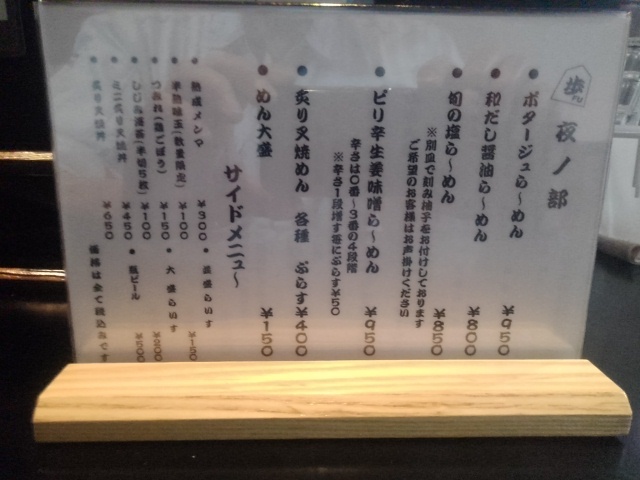 歩ん
夜ノ部
ポタージュら～めん ￥950
和だし醤油ら～めん ￥800
旬の塩ら～めん ￥850
※別皿で刻み柚子をお付けしております
ご希望のお客様はお声掛けください
ピリ辛生姜味噌ら～めん ￥950
辛さは0番～3番の4段階
※辛さ1段増す毎にぷらす￥50
炙り叉焼めん 各種 ぷらす￥400
めん大盛 ￥150
サイドメニュ～
熟成メンマ ￥300
半熟味玉(数量限定) ￥100
つみれ(鶏ごぼう) ￥150
しじみ海苔(半切5枚) ￥100
ミニ炙り叉焼丼 ￥450
炙り叉焼丼 ￥650
並盛らいす ￥150
大盛らいす ￥200
瓶ビール ￥500
価格は全て税込みです